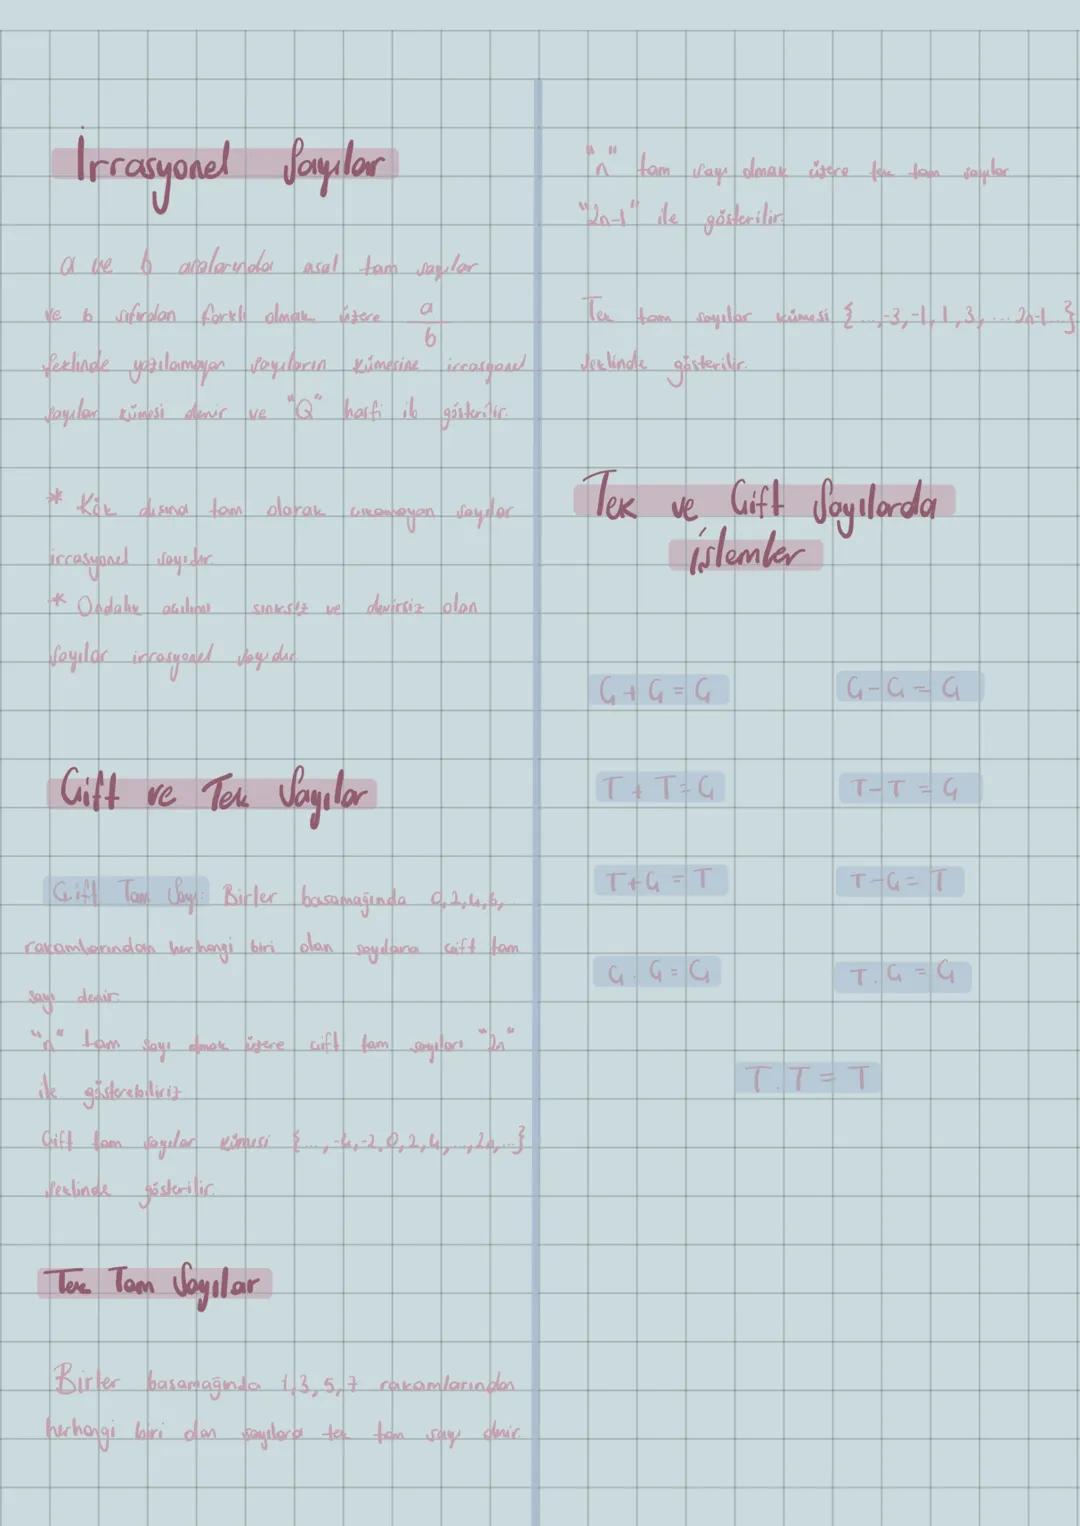 İrrasyonel Sayılar
a ve b aralarında asal tam sayılar
ve b sıfırdan farklı olmak üzere a/b
şeklinde yazılamayan sayıların kümesine irrasyonel
sayılar kümesi denir ve "Q" harfi ile gösterilir.
* Kök dışına tam olarak çıkamayan sayılar
irrasyonel sayıdır.
* Ondalık açılımı sınırsız ve devirsiz olan
sayılar irrasyonel sayıdır.
Çift ve Tek Sayılar
Çift Tam Sayı: Birler basamağında 0,2,4,6,
rakamlarından herhangi biri olan sayılara çift tam
sayı denir.
"n" tam sayı olmak üzere çift tam sayıları "2n"
ile gösterebiliriz
Çift tam sayılar kümesi {..., -4,-2,0,2,4,...,2n,...}
şeklinde gösterilir.
Tek Tam Sayılar
Birler basamağında 1,3,5,7 rakamlarından
herhangi biri olan sayılara tek tam sayı denir.
"n" tam sayı olmak üzere tek tam sayılar
"2n-1" ile gösterilir.
Tek tam sayılar kümesi {...,-3,-1,1,3,...2n-1...}
şeklinde gösterilir.
Tek ve Çift Sayılarda
işlemler
Ç+Ç=Ç
Ç-Ç=Ç
T+T=Ç
T-T=Ç
T+Ç=T
T-Ç=T
Ç.Ç=Ç
T.Ç=Ç
T.T=T